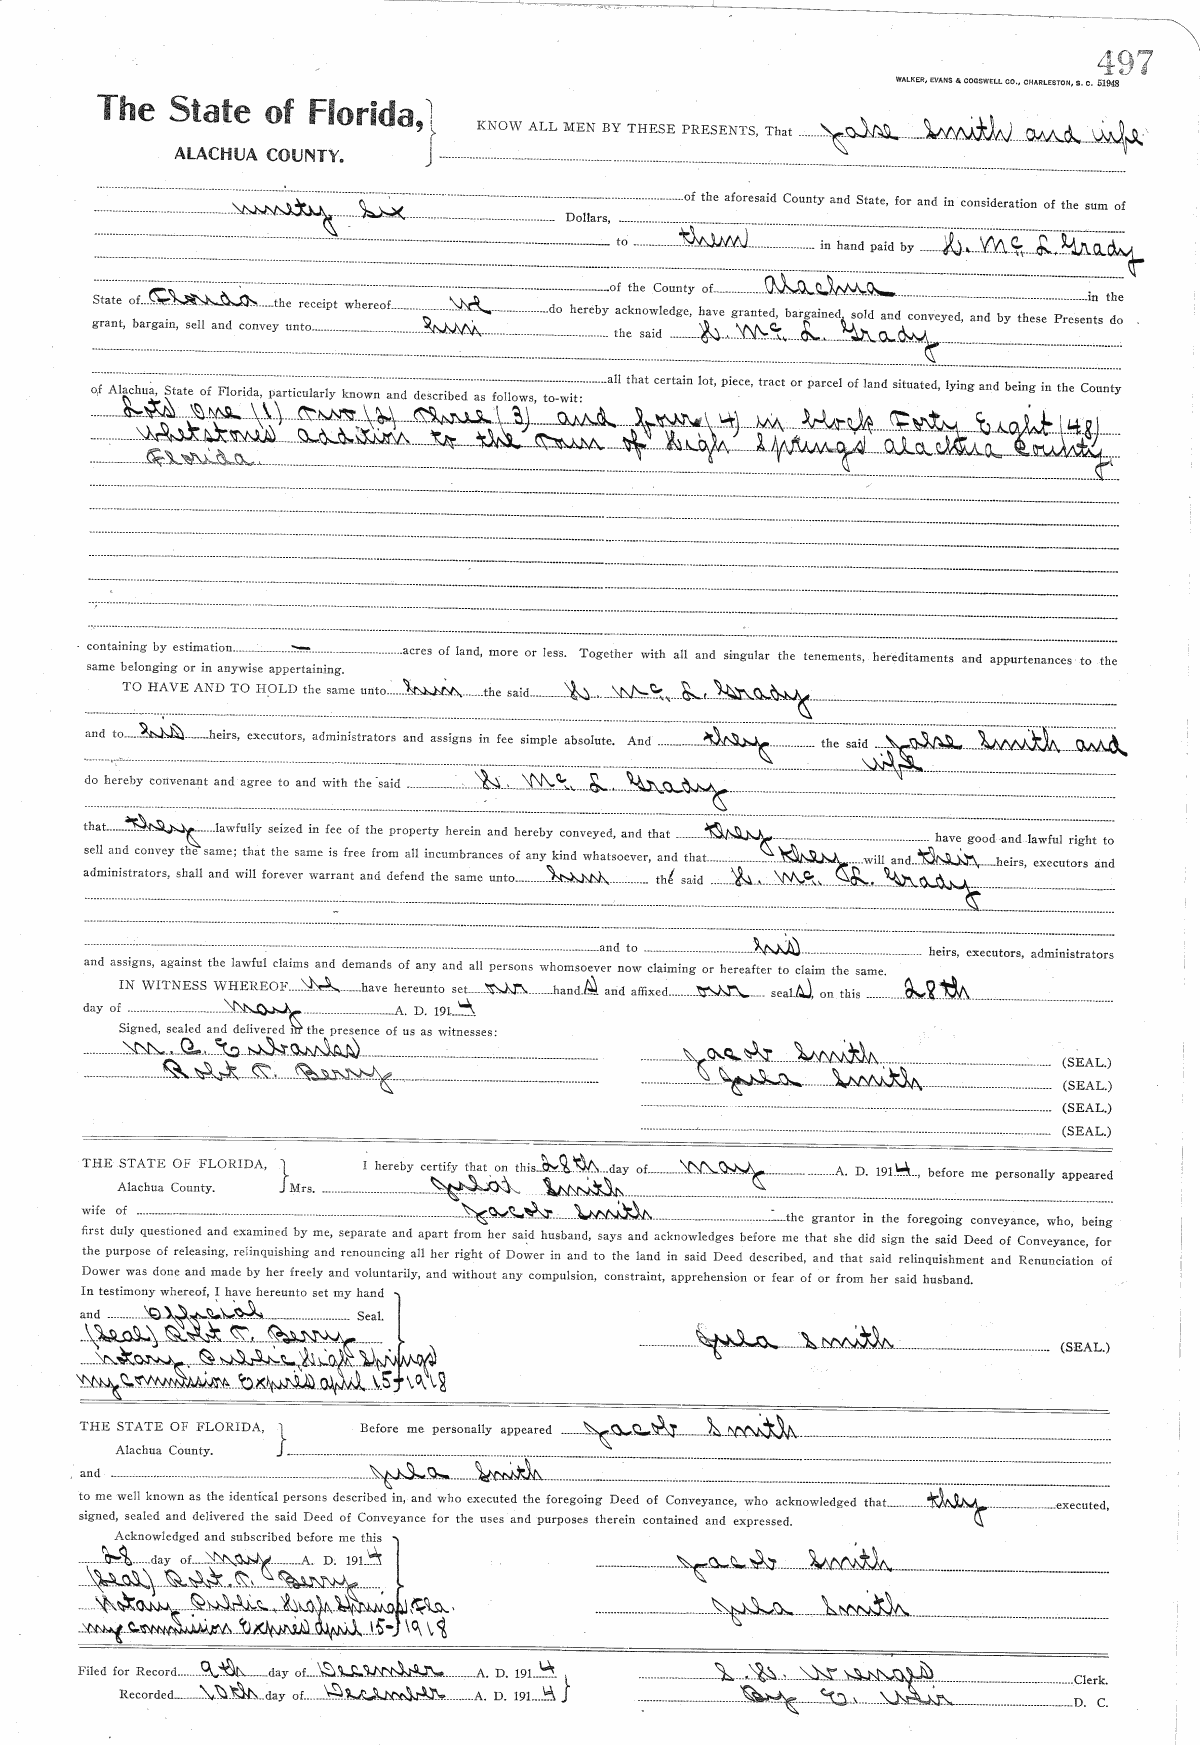 497
WALKER, EVANS & COGSWELL CO., CHARLESTON, S. C. 51948
The State of Florida,
ALACHUA COUNTY.
KNOW ALL MEN BY THESE PRESENTS, That Jake Smith and wife
of the aforesaid County and State, for and in consideration of the sum of
ninety six Dollars,
to them in hand paid by H. Mc. L. Grady
of the County of Alachua in the
State of Florida the receipt whereof we do hereby acknowledge, have granted, bargained, sold and conveyed, and by these Presents do
grant, bargain, sell and convey unto him the said H. Mc. L. Grady
all that certain lot, piece, tract or parcel of land situated, lying and being in the County
of Alachua, State of Florida, particularly known and described as follows, to-wit:
Lots One (1) Two (2) Three (3) and four (4) in block Forty Eight (48)
Whetstones addition to the town of High Springs Alachua County
Florida.
containing by estimation — acres of land, more or less. Together with all and singular the tenements, hereditaments and appurtenances to the
same belonging or in anywise appertaining.
TO HAVE AND TO HOLD the same unto him the said H. Mc. L. Grady
and to his heirs, executors, administrators and assigns in fee simple absolute. And they the said Jake Smith and
wife
do hereby convenant and agree to and with the said H. Mc. L. Grady
that they lawfully seized in fee of the property herein and hereby conveyed, and that they have good and lawful right to
sell and convey the same; that the same is free from all incumbrances of any kind whatsoever, and that they will and their heirs, executors and
administrators, shall and will forever warrant and defend the same unto him the said H. Mc. L. Grady
and to his heirs, executors, administrators
and assigns, against the lawful claims and demands of any and all persons whomsoever now claiming or hereafter to claim the same.
IN WITNESS WHEREOF we have hereunto set our hands and affixed our seals, on this 28th
day of May A. D. 1914
Signed, sealed and delivered in the presence of us as witnesses:
M. C. Eubanks
Robt T. Berry
Jacob Smith (SEAL.)
Jula Smith (SEAL.)
(SEAL.)
(SEAL.)
THE STATE OF FLORIDA,
Alachua County.
I hereby certify that on this 28th day of May A. D. 1914, before me personally appeared
Mrs. Smith
wife of Jacob Smith the grantor in the foregoing conveyance, who, being
first duly questioned and examined by me, separate and apart from her said husband, says and acknowledges before me that she did sign the said Deed of Conveyance, for
the purpose of releasing, relinquishing and renouncing all her right of Dower in and to the land in said Deed described, and that said relinquishment and Renunciation of
Dower was done and made by her freely and voluntarily, and without any compulsion, constraint, apprehension or fear of or from her said husband.
In testimony whereof, I have hereunto set my hand
and official Seal.
(Seal) Robt T. Berry
Notary Public, High Springs
my commission Expires april 15-1918
Jula Smith (SEAL.)
THE STATE OF FLORIDA,
Alachua County.
Before me personally appeared Jacob Smith
and Jula Smith
to me well known as the identical persons described in, and who executed the foregoing Deed of Conveyance, who acknowledged that they executed,
signed, sealed and delivered the said Deed of Conveyance for the uses and purposes therein contained and expressed.
Acknowledged and subscribed before me this
28 day of May A. D. 1914
(Seal) Robt. T. Berry
Notary Public, High Springs, Fla.
my commission Expires april 15-1918
Jacob Smith
Jula Smith
Filed for Record 9th day of December A. D. 1914
Recorded 10th day of December A. D. 1914
S. H. Wienges Clerk.
By E. Weir D. C.